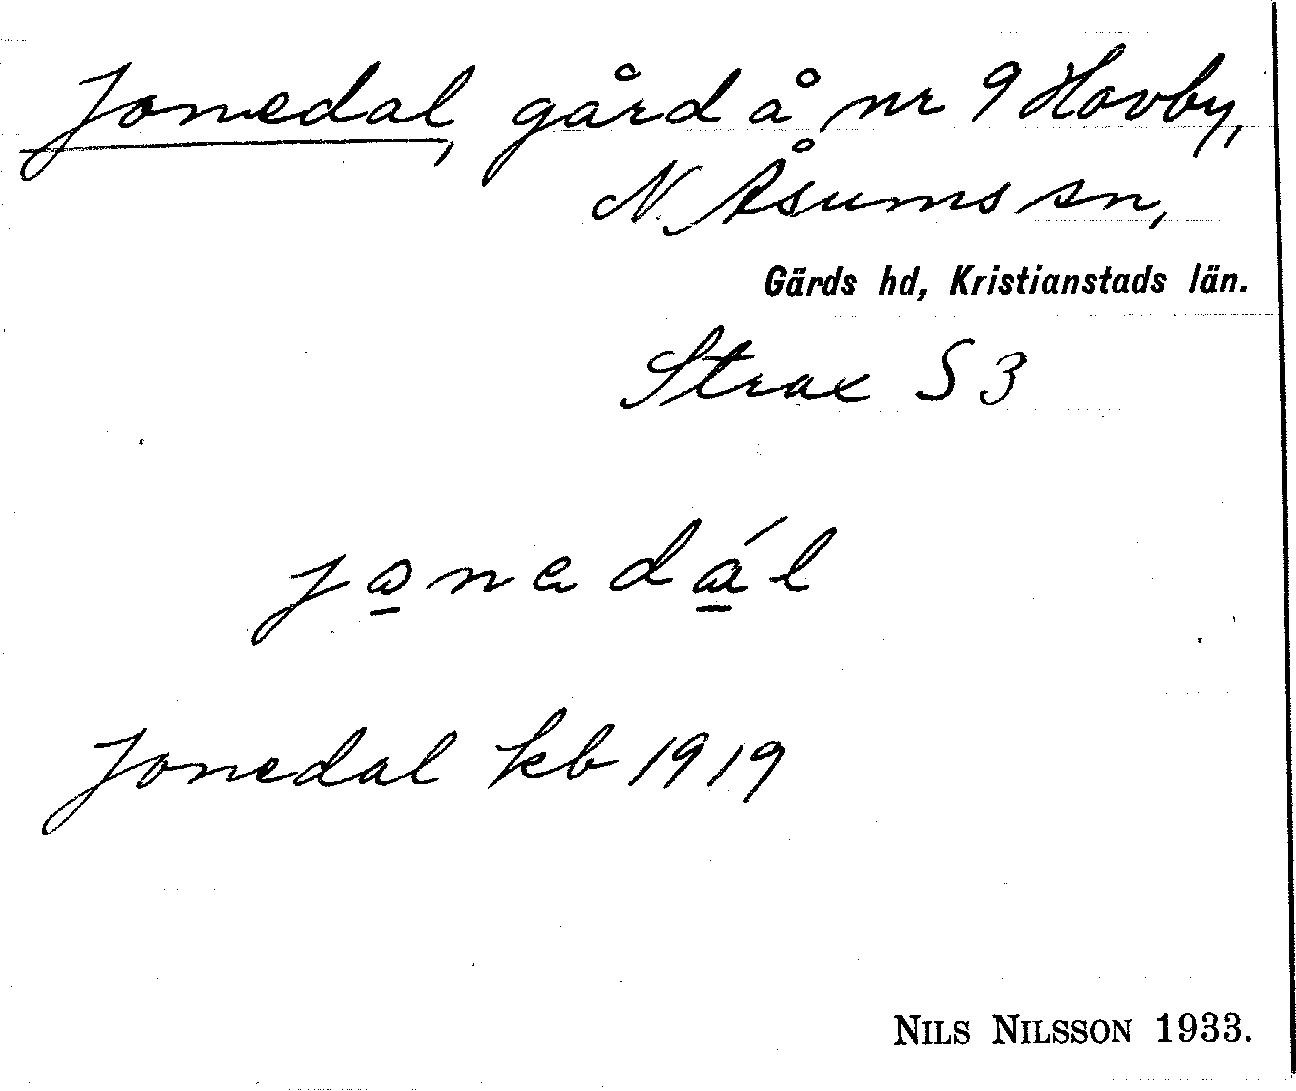 Jonedal, gård å nr 9 Hovby,
N. Åsums sn,
Gärds hd, Kristianstads län.
Strax S 3
jo̲nedá̲l
Jonedal kb 1919
NILS NILSSON 1933.